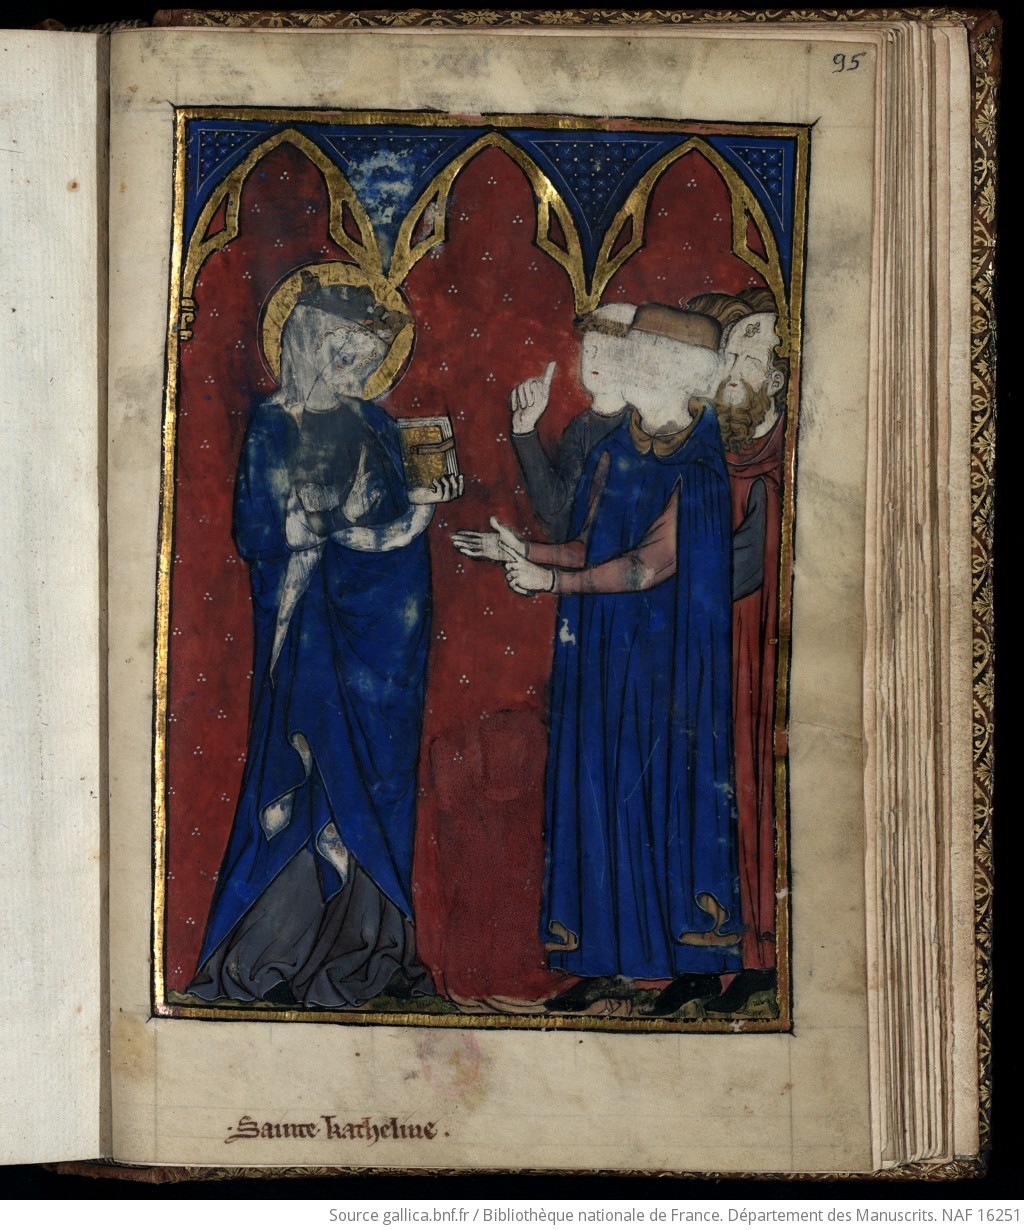 95
·Sainte·katheline·
Source gallica.bnf.fr / Bibliothèque nationale de France. Département des Manuscrits. NAF 16251